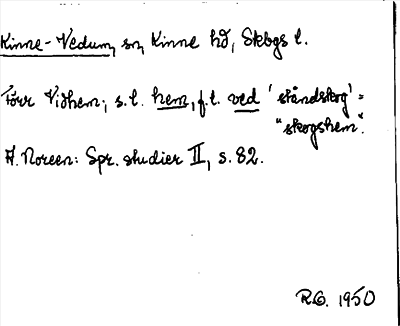 Kinne-Vedum, sn, Kinne hd, Skbgs l.
Förr Vidhem; s.l. hem, f.l. ved 'ståndskog' =
"skogshem".
A. Noreen: Spr. studier II, s. 82.
R.G. 1950